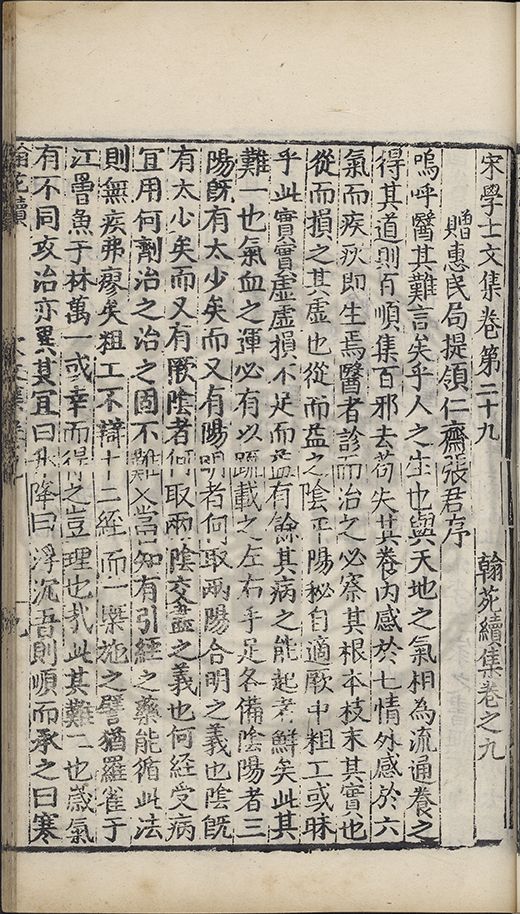 宋學士文集卷第二十九 翰苑續集卷之九
贈惠民局提領仁齋張君序
嗚呼醫其難言矣乎人之生也與天地之氣相為流通養之
得其道則百順集百邪去苟失其養內感於七情外感於六
氣而疾疢即生焉醫者診而治之必察其根本枝末其實也
從而損之其虛也從而益之陰平陽秘自適厥中粗工或昧
乎此實實虛虛損不足而益有餘其病之能起者鮮矣此其
難一也氣血之運必有以疏載之左右手足各備陰陽者三
陽既有太少矣而又有陽明者何取兩陽合明之義也陰既
有太少矣而又有厥陰者何取兩陰交盡之義也何經受病
宜用何劑治之治之固不難又當知有引經之藥能循此法
則無疾弗瘳矣粗工不辯十二經而一槩施之譬猶羅雀于
江罾魚于林萬一或幸而得之豈理也哉此其難二也歲氣
有不同攻治亦異其宜曰升降曰浮沉吾則順而承之曰寒
翰苑續